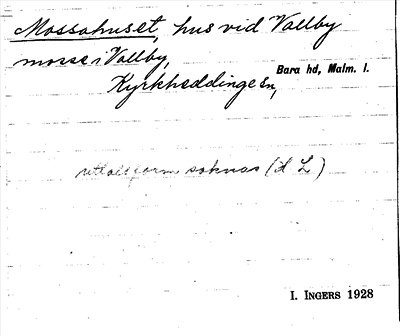 Mossahuset, hus vid Vallby
mosse i Vallby,
Kyrkheddinge sn,
Bara hd, Malm. l.
uttalsform saknas (I L)
I. INGERS 1928